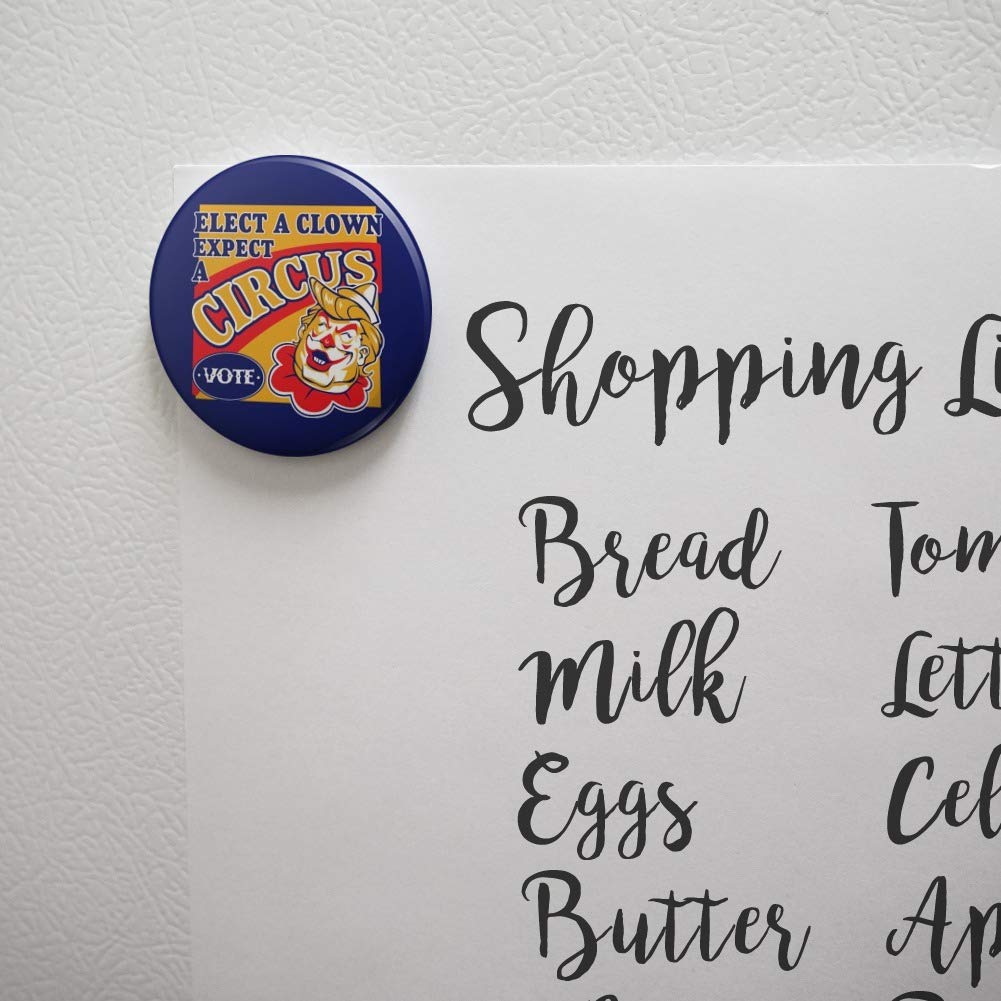 ELECT A CLOWN
EXPECT
A
CIRCUS
·VOTE·
Shopping Li
Bread Tom
Milk Lett
Eggs Cel
Butter Ap